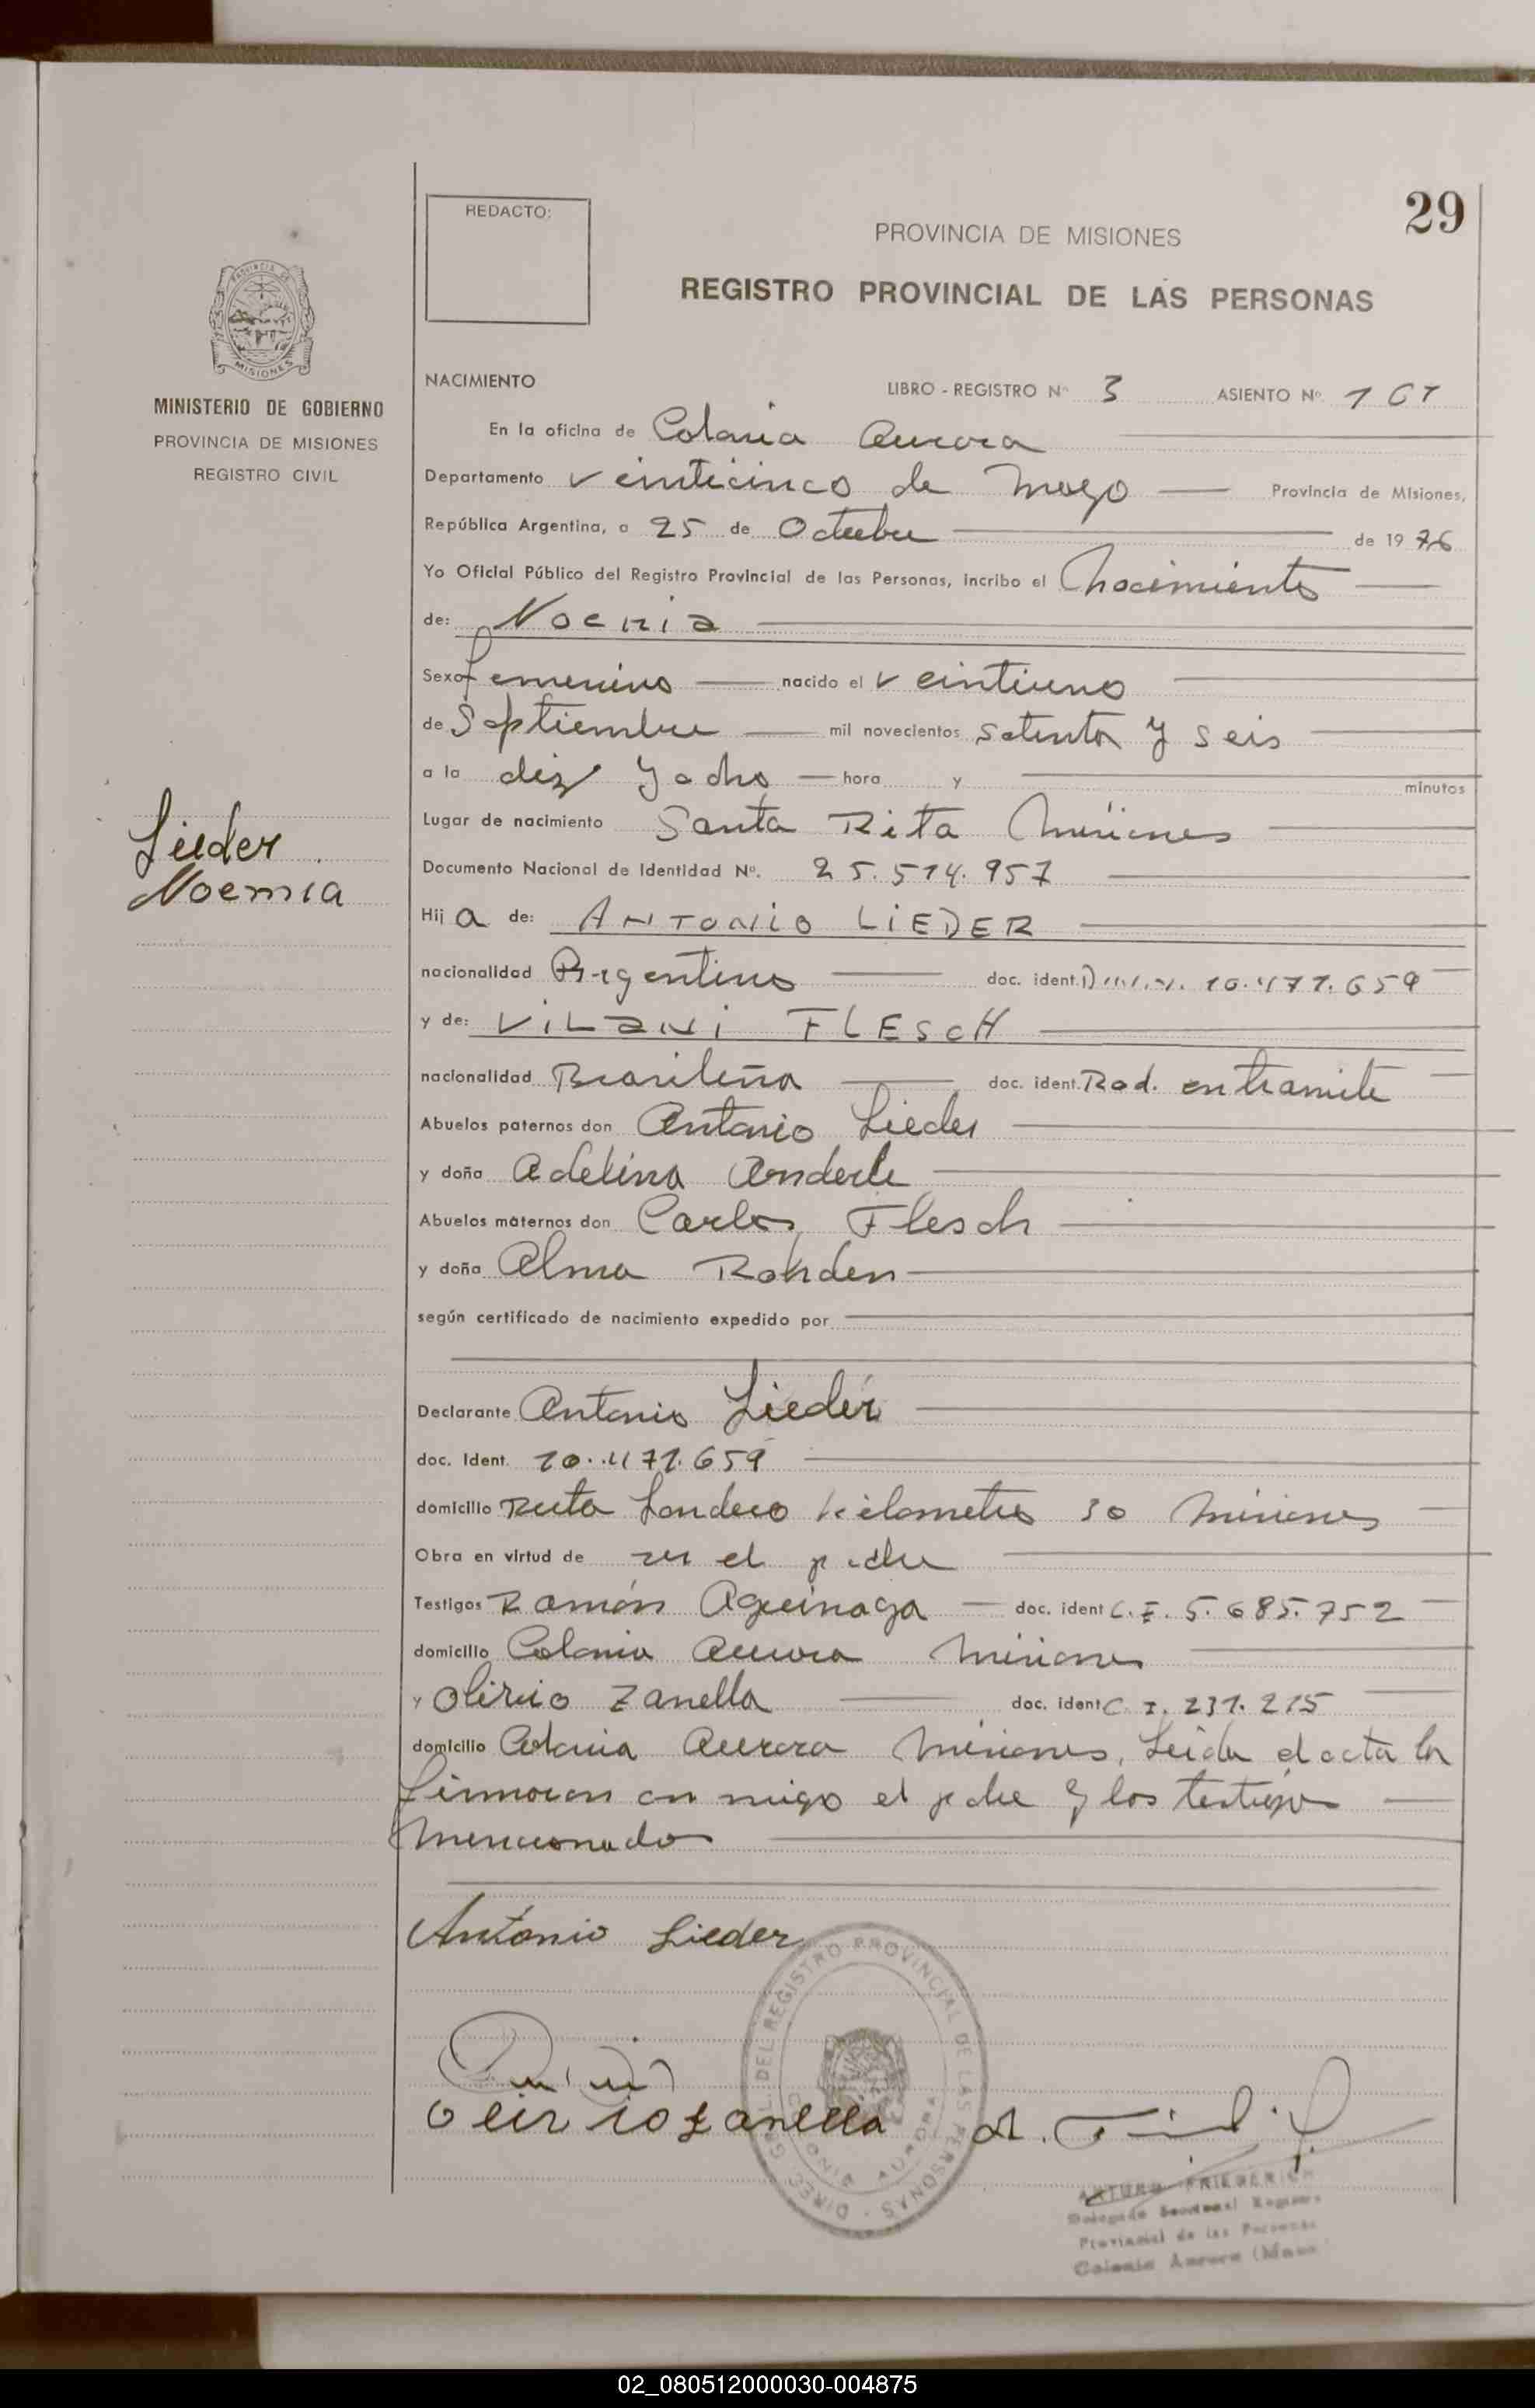 29
REDACTO:
PROVINCIA DE MISIONES
REGISTRO PROVINCIAL DE LAS PERSONAS
MISIONES
MINISTERIO DE GOBIERNO
PROVINCIA DE MISIONES
REGISTRO CIVIL
Lieder
Noemia
NACIMIENTO LIBRO - REGISTRO Nº 3 ASIENTO Nº
En la oficina de Colonia Aurora
Departamento veinticinco de Mayo Provincia de Misiones,
República Argentina, a 25 de Octubre de 19 76
Yo Oficial Público del Registro Provincial de las Personas, incribo el Nacimiento
de: Noemia
Sexo femenino nacido el veintiuno
de Septiembre mil novecientos setenta y seis
a la diez y ocho hora y minutos
Lugar de nacimiento Santa Rita Misiones
Documento Nacional de Identidad Nº. 25.514.957
Hij a de: ANTONIO LIEDER
nacionalidad Argentino doc. ident. D.N.I. 10.477.659
y de: VILANI FLESCH
nacionalidad Brasileña doc. ident. Rad. en tramite
Abuelos paternos don Antonio Lieder
y doña Adelina Anderle
Abuelos maternos don Carlos Flesch
y doña Alma Rohden
según certificado de nacimiento expedido por
Declarante Antonio Lieder
doc. Ident. 10.477.659
domicilio Ruta Londero kilometro 30 Misiones
Obra en virtud de ser el padre
Testigos Ramón Aguinaga doc. ident C.I. 5.685.752
domicilio Colonia Aurora Misiones
y Olirio Zanella doc. ident C.I. 231.215
domicilio Colonia Aurora Misiones, Leida el acta la
firmaron conmigo el padre y los testigos
mencionados
Antonio Lieder
Olirio Zanella
DIREC. GRAL. DEL REGISTRO PROVINCIAL DE LAS PERSONAS
COLONIA AURORA
ARTURO FRIEDERICH
Delegado Seccional Registro
Provincial de las Personas
Colonia Aurora (Mnes
02_080512000030-004875